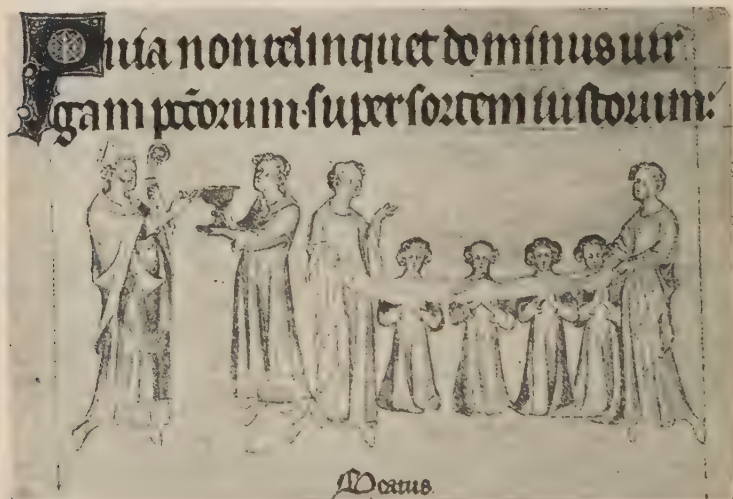 Quia non relinquet dominus uir
gam pccorum super sortem iustorum:
Beatus